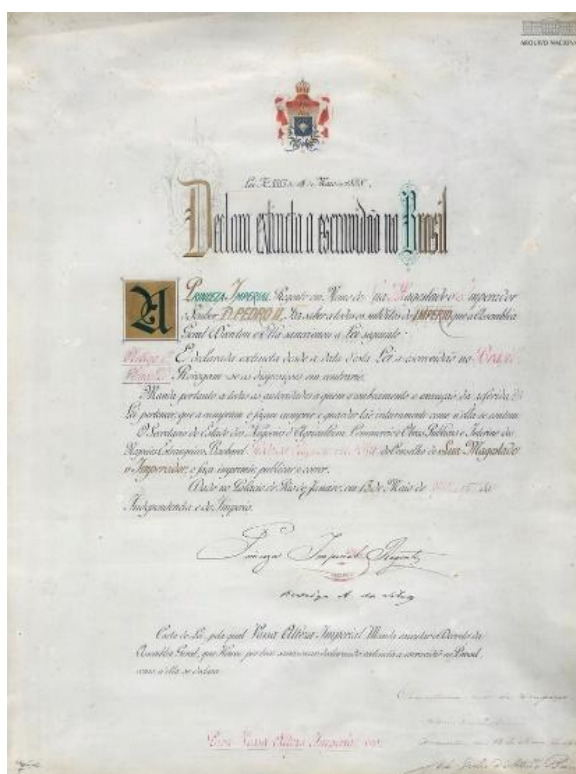 ARQUIVO NACIONAL
Lei Nº 3353 de 13 de Maio de 1888.
Declara extincta a escravidão no Brasil
A PRINCEZA IMPERIAL Regente em Nome de Sua Magestade o Imperador
o Senhor D. PEDRO II, Faz saber a todos os subditos do IMPERIO que a Assembléa
Geral Decretou e Ella sanccionou a Lei seguinte:
Artigo 1º É declarada extincta desde a data d'esta Lei a escravidão no Brasil.
Revogam-se as disposições em contrario.
Manda portanto a todas as autoridades a quem o conhecimento e execução da referida
Lei pertencer, que a cumpram e façam cumprir e guardar tão inteiramente como n'ella se contem.
O Secretario de Estado dos Negocios d'Agricultura, Commercio e Obras Publicas e Interino dos
Negocios Estrangeiros, Bacharel do Conselho de Sua Magestade
o Imperador, o faça imprimir, publicar e correr.
Dado no Palacio do Rio de Janeiro, em 13 de Maio de
Independencia e do Imperio.
Princeza Imperial Regente
Rodrigo A. da Silva
Carta de Lei, pela qual Vossa Alteza Imperial Manda executar o Decreto da
Assembléa Geral, que Houve por bem sanccionar declarando extincta a escravidão no Brasil,
como n'ella se declara.
Para Vossa Alteza Imperial ver.